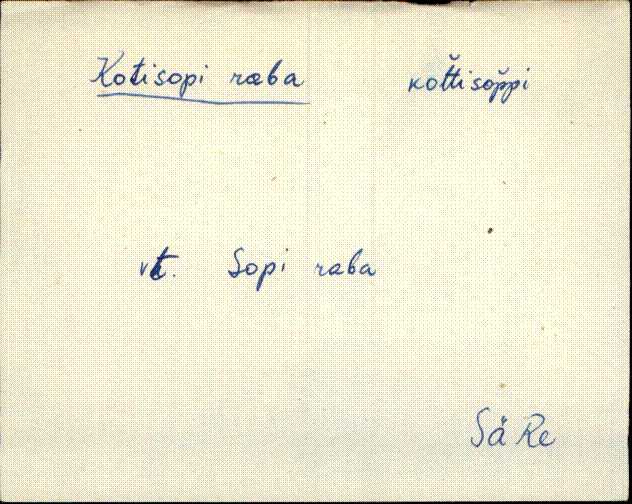 Kotisopi raba koťťisoppi
vt. Sopi raba
Sä Re